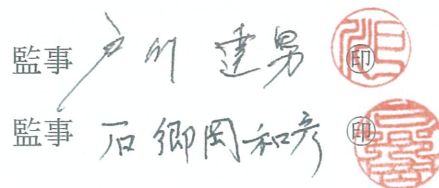 監事 戸川 達男 印
監事 石郷岡和彦 印